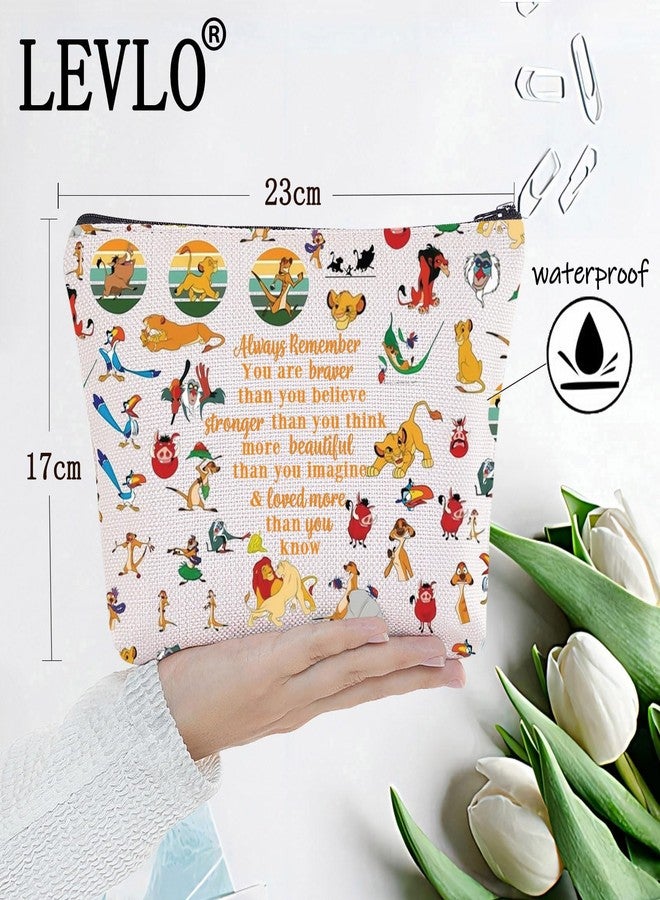 LEVLO®
23cm
waterproof
17cm
Always Remember
You are braver
than you believe
stronger than you think
more beautiful
than you imagine
& loved more
than you
know